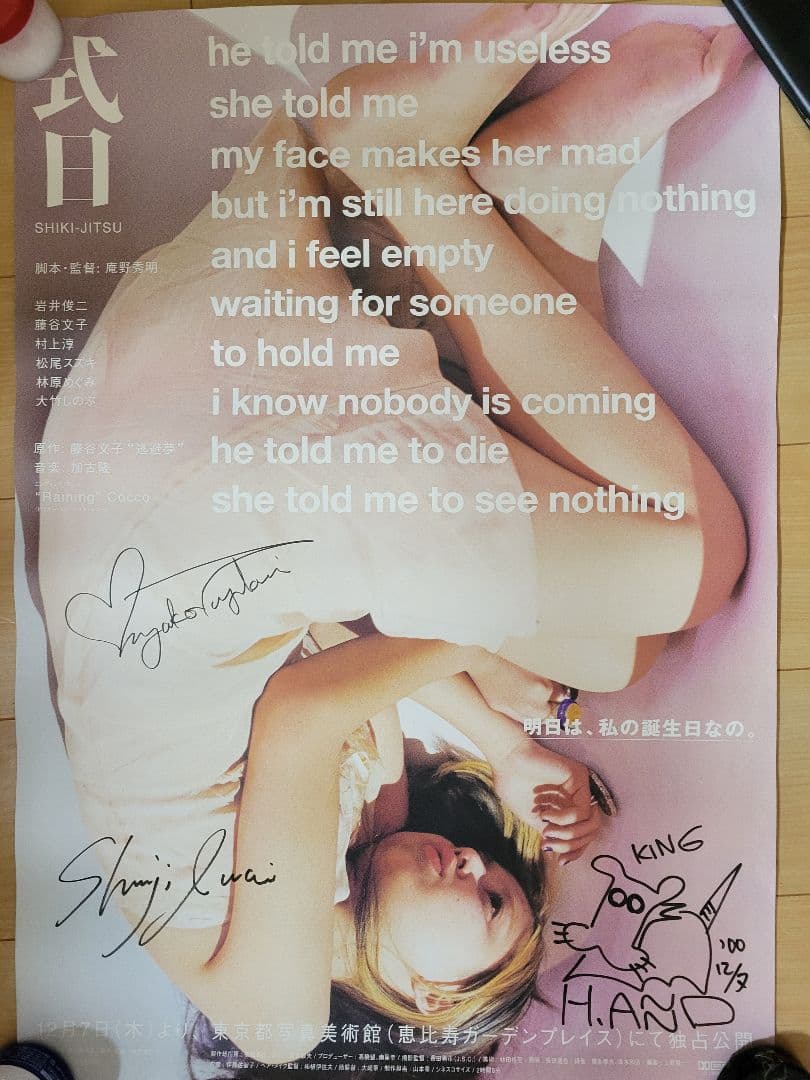 式日
SHIKI-JITSU
脚本・監督: 庵野秀明
岩井俊二
藤谷文子
村上淳
松尾スズキ
林原めぐみ
大竹しのぶ
原作: 藤谷文子“逃避夢”
音楽: 加古隆
“Raining” Cocco
he told me i’m useless
she told me
my face makes her mad
but i’m still here doing nothing
and i feel empty
waiting for someone
to hold me
i know nobody is coming
he told me to die
she told me to see nothing
明日は、私の誕生日なの。
Shunji Iwai
KING
'00
12/7
H.AND
12月7日(木)より、東京都写真美術館(恵比寿ガーデンプレイス)にて独占公開